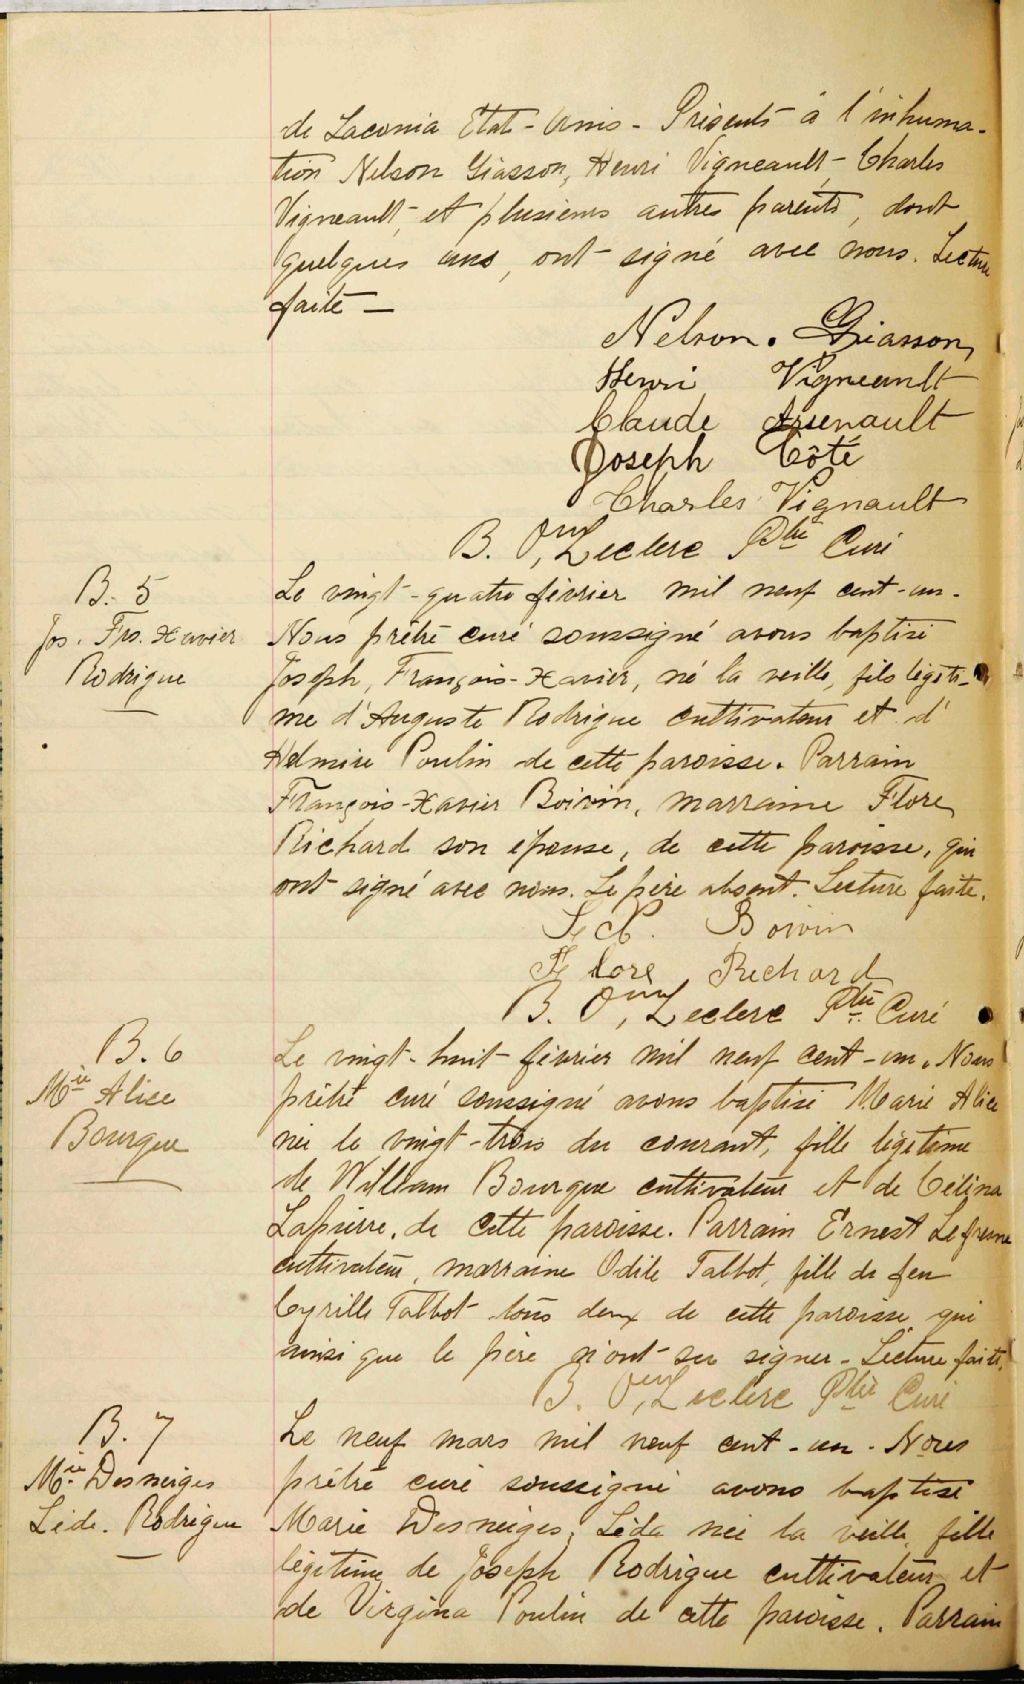 de Laconia Etat-Unis - Présents à l'inhuma-
tion Nelson Giasson, Henri Vigneault, Charles
Vigneault, et plusieurs autres parents, dont
quelques uns, ont signé avec nous. Lecture
faite —
Nelson. Giasson
Henri Vigneault
Claude Arsenault
Joseph Côté
Charles Vignault
B. O, Leclerc Ptre Curé
B. 5
Jos. Frs. Xavier
Rodrigue
Le vingt-quatre février mil neuf cent-un.
Nous prêtre curé soussigné avons baptisé
Joseph, François-Xavier, né la veille, fils légiti-
me d'Auguste Rodrigue cultivateur et d'
Helmire Poulin de cette paroisse. Parrain
François-Xavier Boivin, marraine Flore
Richard son épouse, de cette paroisse, qui
ont signé avec nous. Le père absent. Lecture faite.
F. X. Boivin
Flore Richard
B. O, Leclerc Ptre Curé
B. 6
Mie Alice
Bourque
Le vingt-huit février mil neuf cent-un. Nous
prêtre curé soussigné avons baptisé Marie Alice
née le vingt-trois du courant, fille légitime
de William Bourque cultivateur et de Célina
Lapierre, de cette paroisse. Parrain Ernest
cultivateur, marraine Odile Talbot, fille de feu
Cyrille Talbot tous deux de cette paroisse qui
ainsi que le père n'ont su signer - Lecture faite.
B. O, Leclerc Ptre Curé
B. 7
Mie Desneiges
Léda. Rodrigue
Le neuf mars mil neuf cent-un. Nous
prêtre curé soussigné avons baptisé
Marie Desneiges, Léda née la veille, fille
légitime de Joseph Rodrigue cultivateur et
de Virgina Poulin de cette paroisse. Parrain